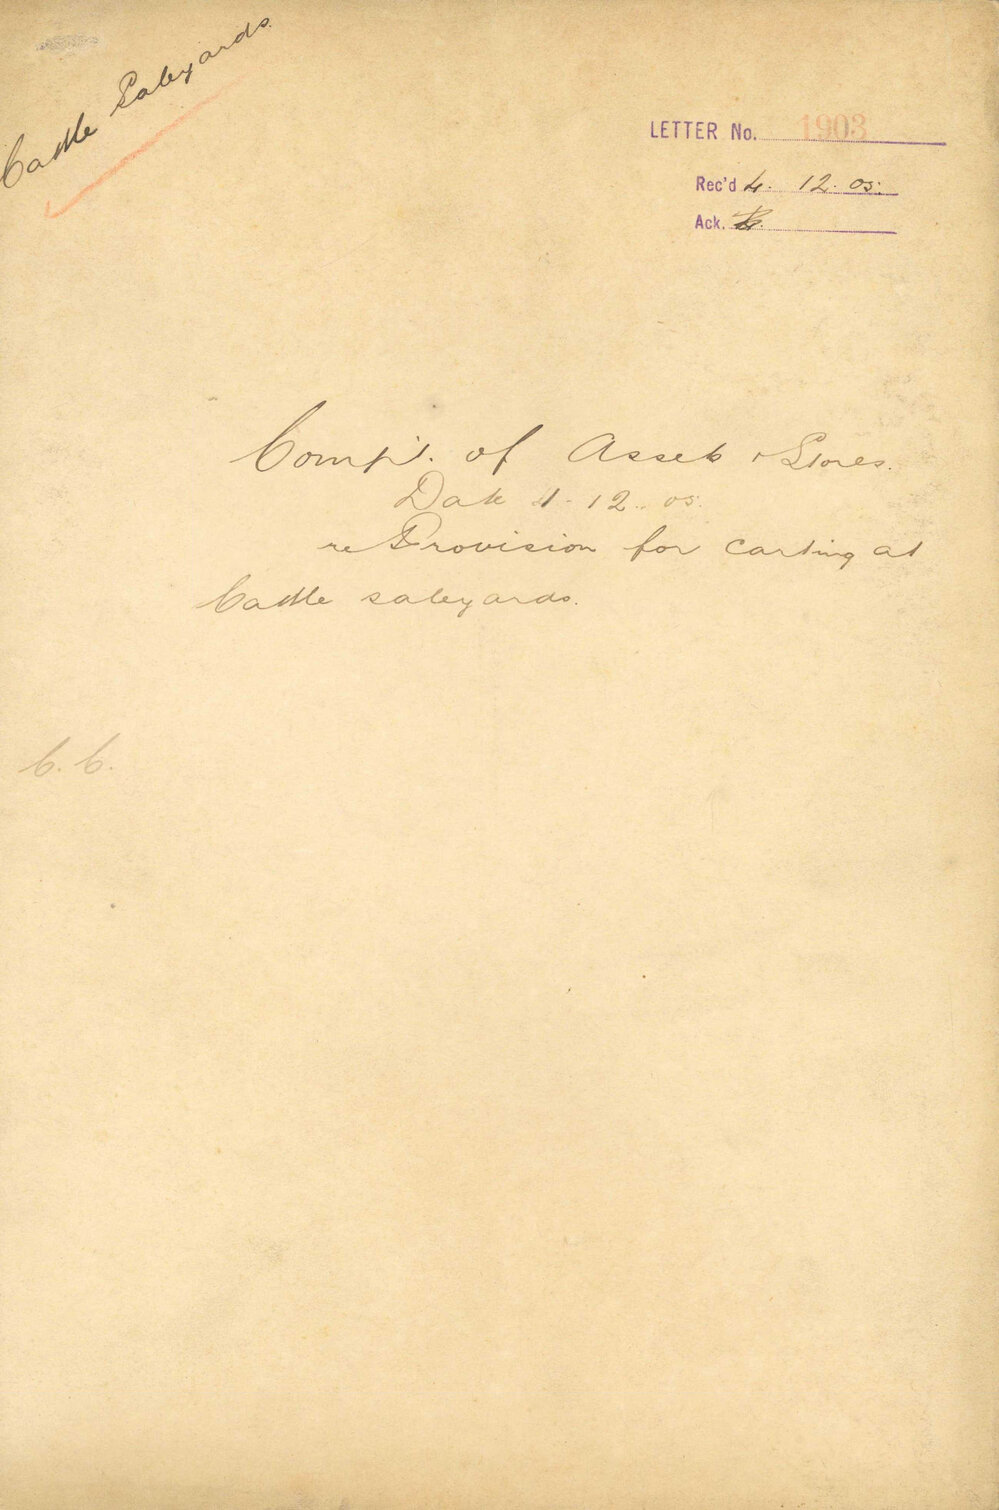 Cattle Saleyards.
LETTER No. 1903
Rec'd 4. 12. 05.
Ack.
Compt. of Assets & Stores.
Date 4-12-05.
re Provision for carting at
Cattle saleyards.
C. C.